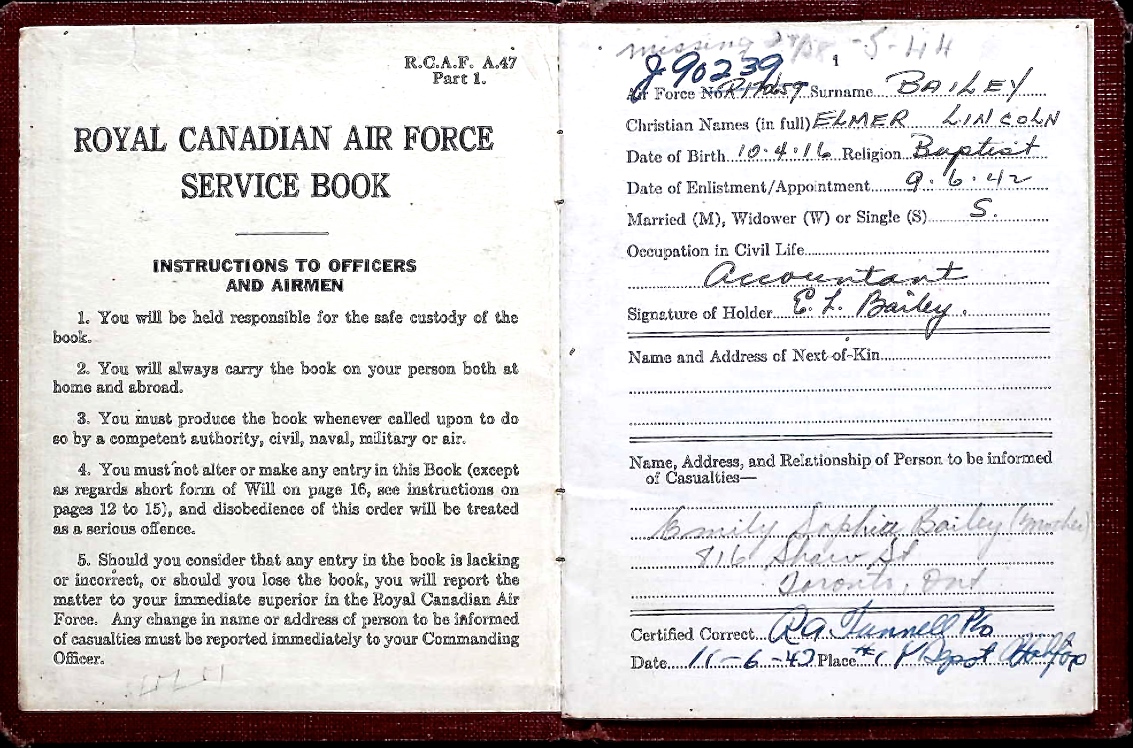 R.C.A.F. A.47
Part 1.
ROYAL CANADIAN AIR FORCE
SERVICE BOOK
INSTRUCTIONS TO OFFICERS
AND AIRMEN
1. You will be held responsible for the safe custody of the
book.
2. You will always carry the book on your person both at
home and abroad.
3. You must produce the book whenever called upon to do
so by a competent authority, civil, naval, military or air.
4. You must not alter or make any entry in this Book (except
as regards short form of Will on page 16, see instructions on
pages 12 to 15), and disobedience of this order will be treated
as a serious offence.
5. Should you consider that any entry in the book is lacking
or incorrect, or should you lose the book, you will report the
matter to your immediate superior in the Royal Canadian Air
Force. Any change in name or address of person to be informed
of casualties must be reported immediately to your Commanding
Officer.
missing -5-44
1
J90239
Air Force No. Surname BAILEY
Christian Names (in full) ELMER LINCOLN
Date of Birth 10.4.16 Religion Baptist
Date of Enlistment/Appointment 9.6.42
Married (M), Widower (W) or Single (S) S.
Occupation in Civil Life
Accountant
Signature of Holder E. L. Bailey.
Name and Address of Next-of-Kin
Name, Address, and Relationship of Person to be informed
of Casualties—
Emily Sophia Bailey (Mother)
816 Shaw St
Toronto, Ont
Certified Correct
Date 11-6-42 Place Depot Halifax